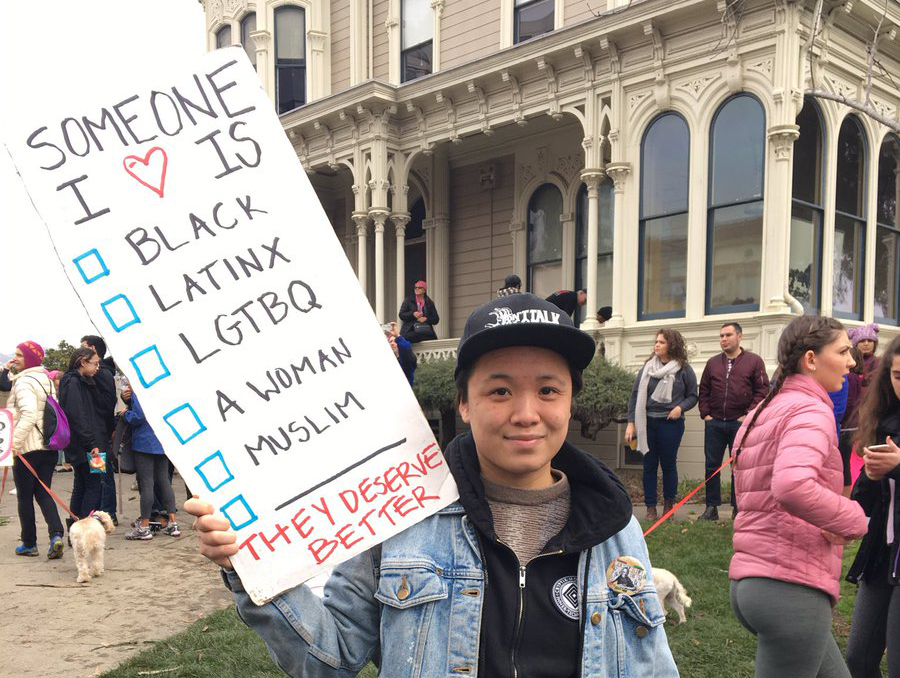 SOMEONE
I ♥ IS
BLACK
LATINX
LGTBQ
A WOMAN
MUSLIM
THEY DESERVE
BETTER